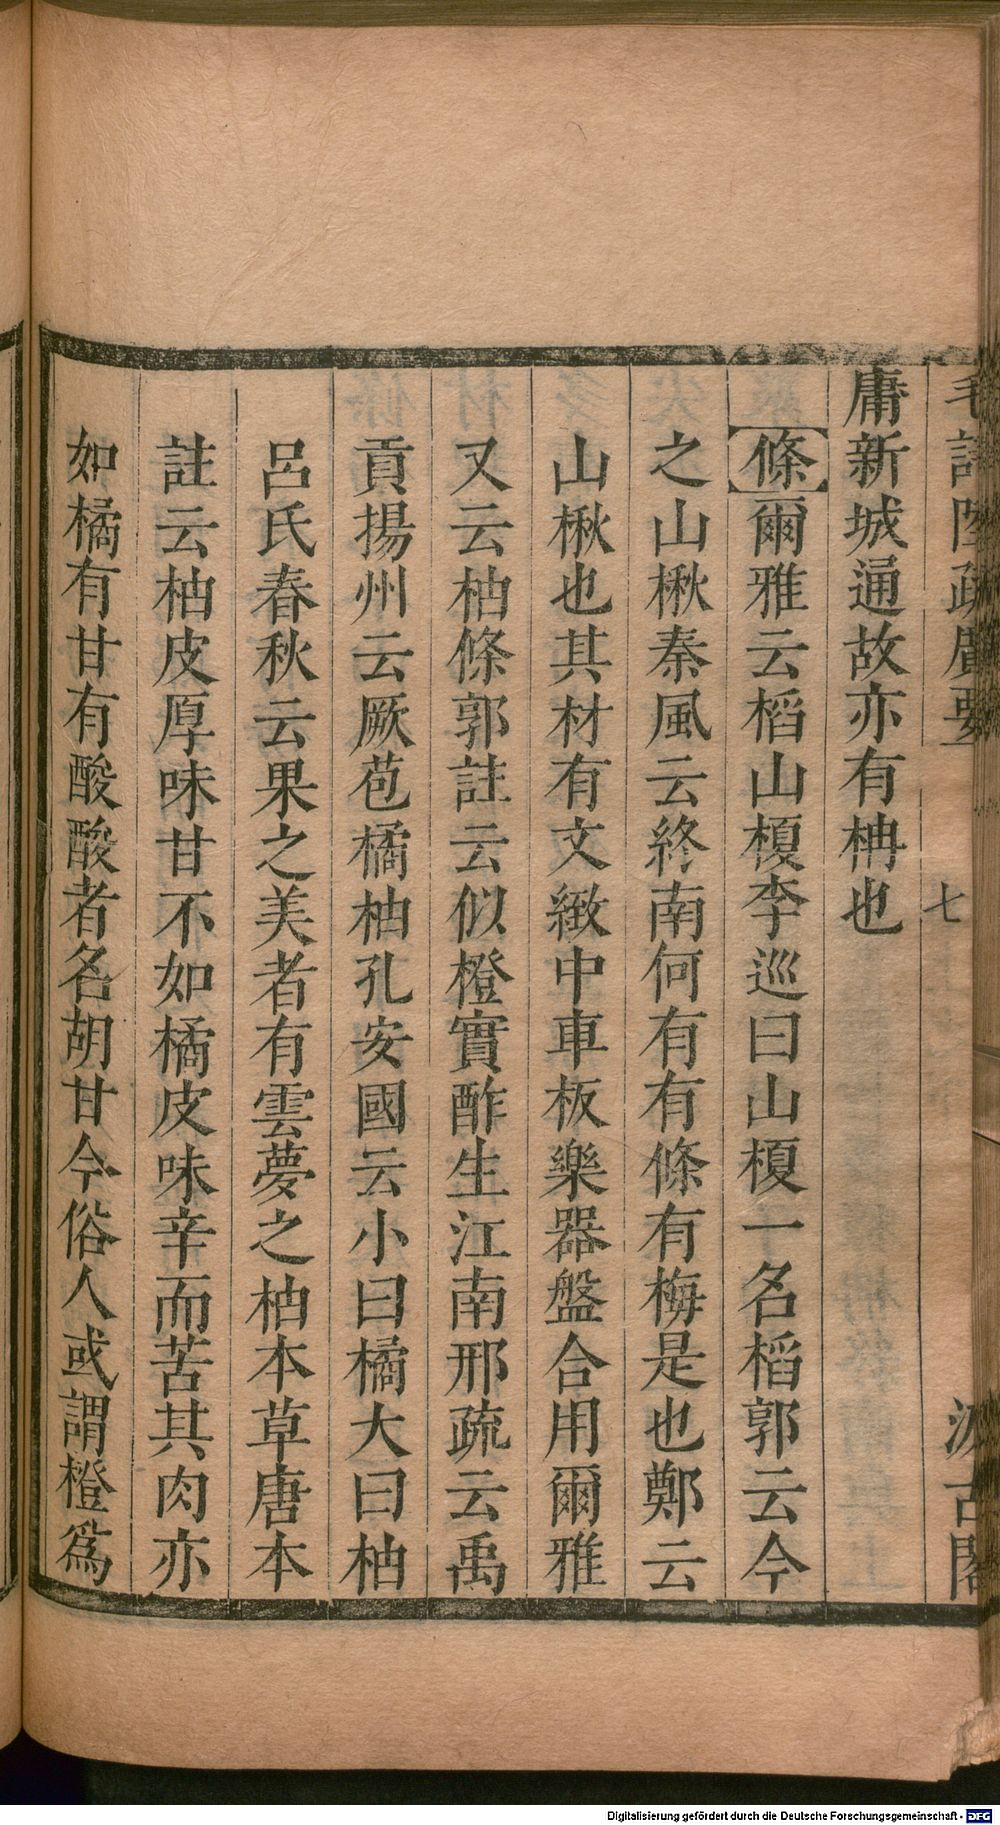 毛詩陸疏廣要
七
汲古閣
庸新城通故亦有柟也
條爾雅云槄山榎李巡曰山榎一名槄郭云今
之山楸秦風云終南何有有條有梅是也鄭云
山楸也其材材有文緻中車板樂器盤合用爾雅
又云柚條郭註云似橙實酢生江南邢疏云禹
貢揚州云厥苞橘柚孔安國云小曰橘大曰柚
呂氏春秋云果之美者有雲夢之柚本草唐本
註云柚皮厚味甘不如橘皮味辛而苦其肉亦
如橘有甘有酸酸者名胡甘今俗人或謂橙爲
Digitalisierung gefördert durch die Deutsche Forschungsgemeinschaft - DFG